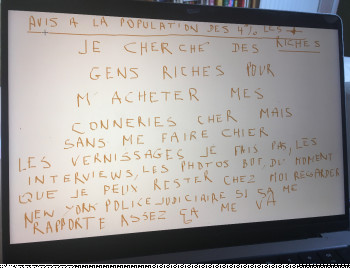 AVIS A LA POPULATION DES 4% LES +
JE CHERCHE DES RICHES
GENS RICHES POUR
M'ACHETER MES
CONNERIES CHER MAIS
SANS ME FAIRE CHIER
LES VERNISSAGES JE FAIS PAS, LES
INTERVIEWS, LES PHOTOS BOF, DU MOMENT
QUE JE PEUX RESTER CHEZ MOI REGARDER
NEW YORK POLICE JUDICIAIRE SI ÇA ME
RAPPORTE ASSEZ ÇA ME VA